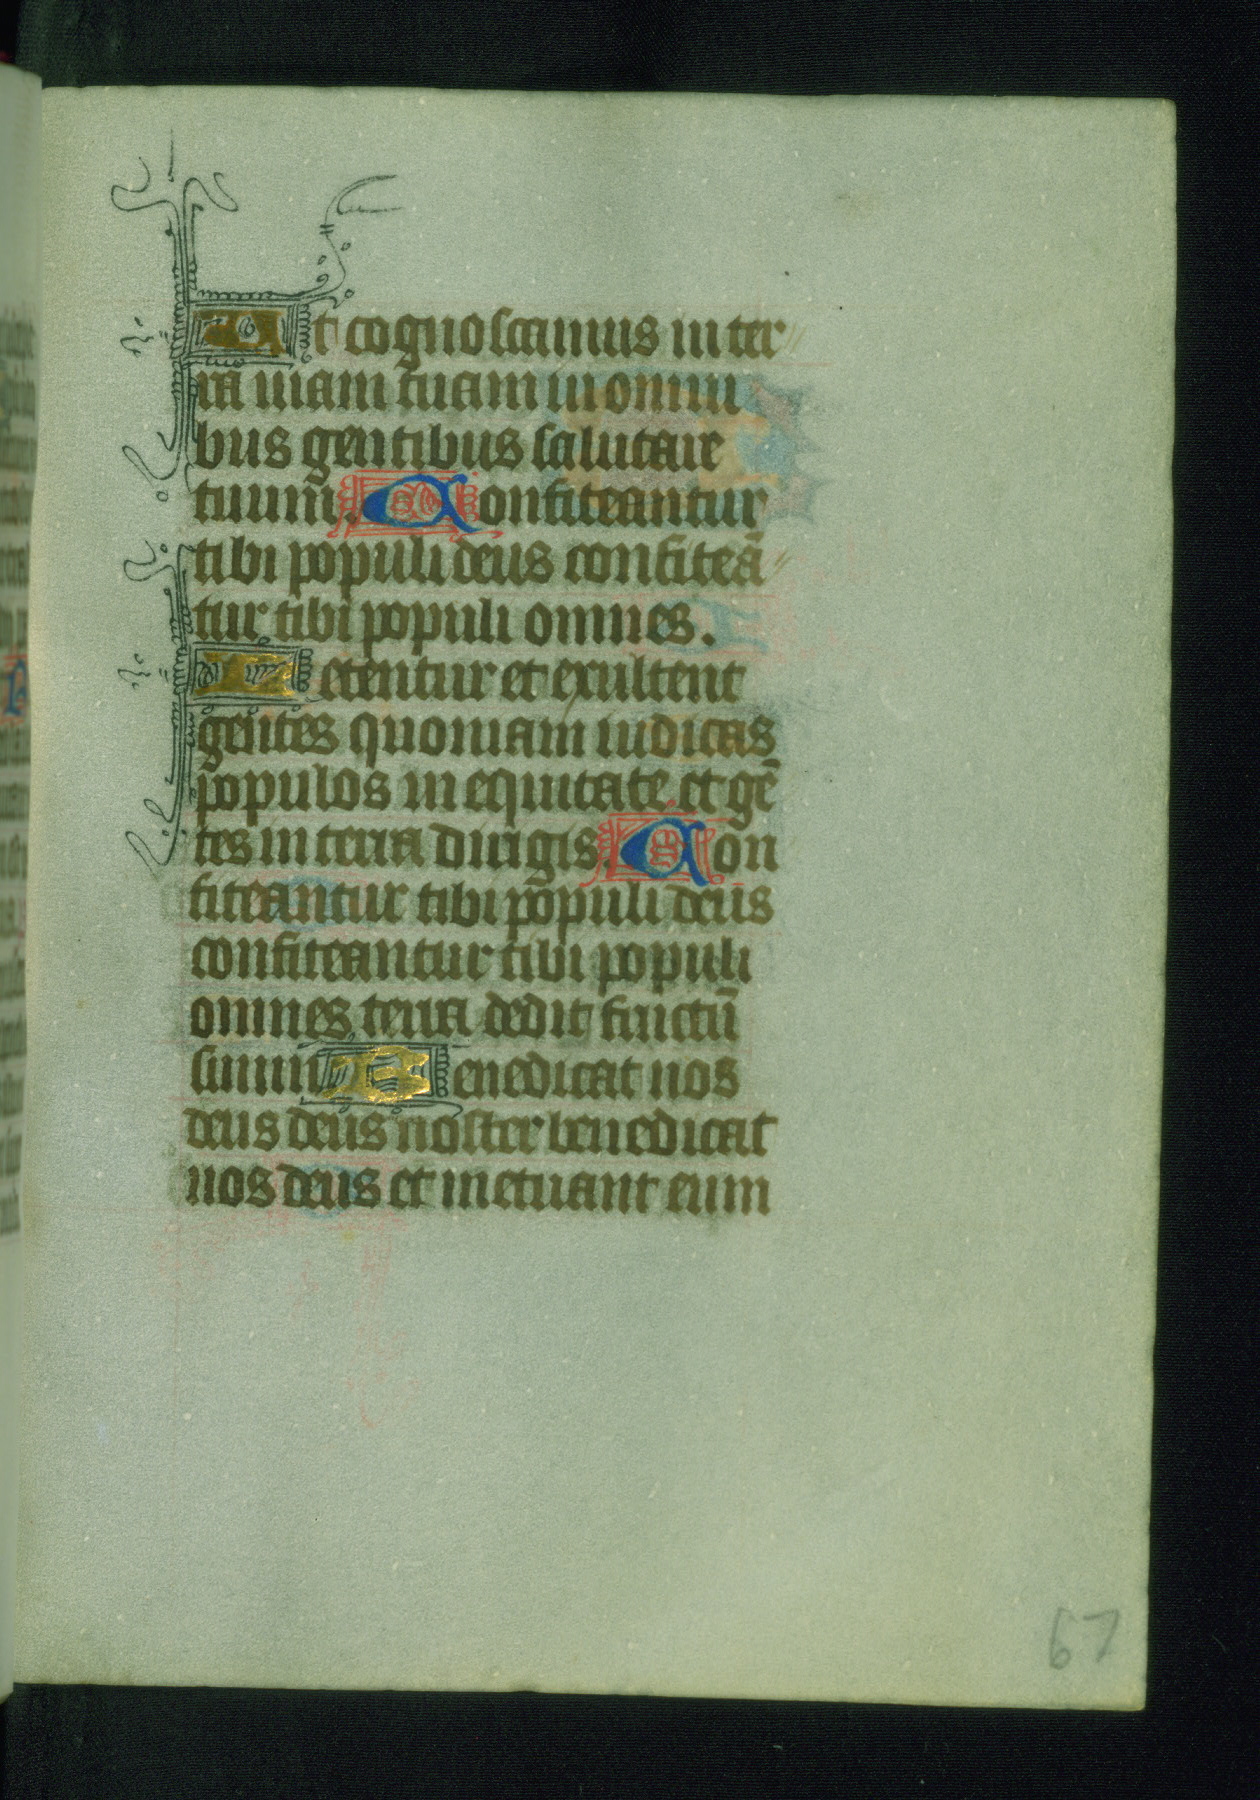 Ut cognoscamus in ter
ra uiam tuam in omni
bus gentibus salutare
tuum. Confiteantur
tibi populi deus confiteā
tur tibi populi omnes.
Letentur et exultent
gentes quoniam iudicas
populos in equitate et gē
tes in terra dirigis. Con
fiteantur tibi populi deus
confiteantur tibi populi
omnes terra dedit fructū
suum Benedicat nos
deus deus noster benedicat
nos deus et metuant eum
67